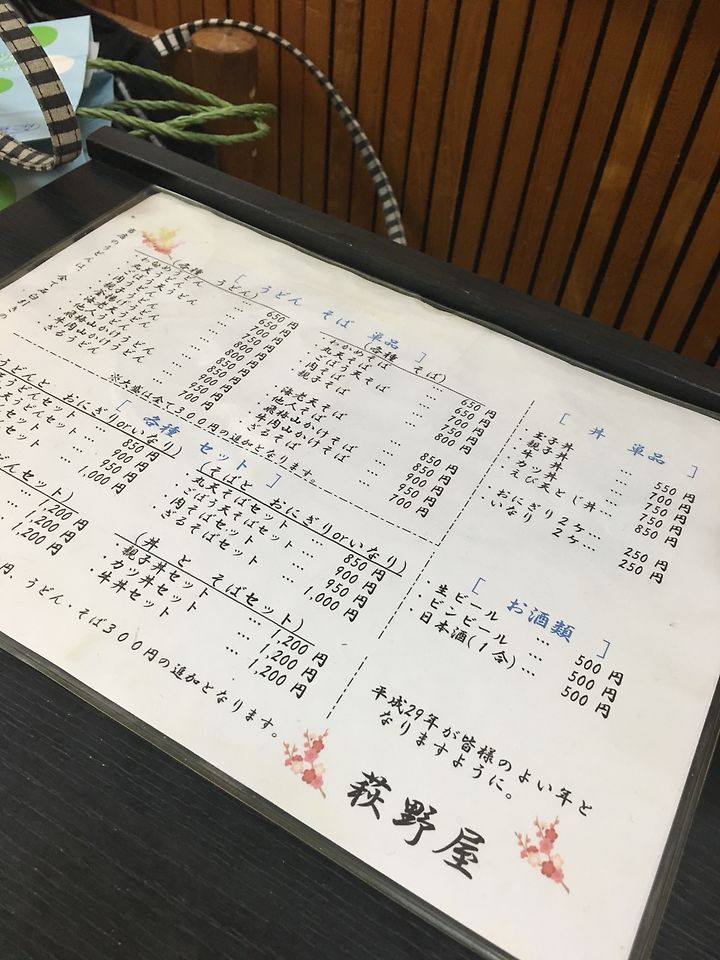 [ うどん そば 単品 ]
(各種 うどん)
・わかめうどん … 650 円
・丸天うどん … 650 円
・ごぼう天うどん … 700 円
・肉うどん … 750 円
800 円
800 円
850 円
900 円
950 円
・ざるうどん 700 円
※大盛は全て300円の追加となります。
(各種 そば)
・わかめそば … 650 円
・丸天そば … 650 円
・ごぼう天そば … 700 円
・肉そば … 750 円
・親子そば … 800 円
・海老天そば … 850 円
・他人そば … 850 円
・飛梅山かけそば 900 円
・牛肉山かけそば 950 円
・ざるそば … 700 円
[ 各種 セット ]
うどんと おにぎりorいなり)
うどんセット … 850 円
天うどんセット … 900 円
セット … 950 円
セット … 1,000 円
(そばと おにぎりorいなり)
・丸天そばセット … 850 円
・ごぼう天そばセット … 900 円
・肉そばセット … 950 円
・ざるそばセット … 1,000 円
どんセット)
…1,200 円
…1,200 円
…1,200 円
(丼 と そばセット)
・親子丼セット …1,200 円
・カツ丼セット …1,200 円
・牛丼セット …1,200 円
円、うどん・そば300円の追加となります。
[ 丼 単品 ]
・玉子丼 … 550 円
・親子丼 … 700 円
・牛 丼 … 750 円
・カツ丼 … 750 円
・えび天とじ丼… 850 円
・おにぎり2ケ… 250 円
・いなり 2ケ… 250 円
[ お酒類 ]
・生ビール … 500 円
・ビンビール … 500 円
・日本酒(1合)… 500 円
平成29年が皆様のよい年と
なりますように。
萩野屋